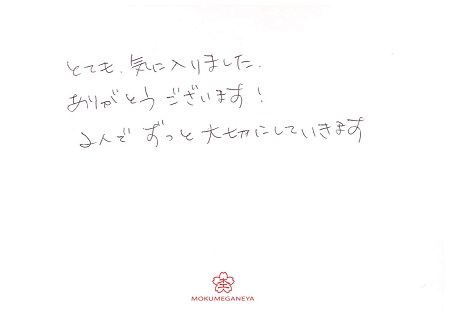 とても、気に入りました.
ありがとうございます!
2人で ずっと 大切にしていきます
MOKUMEGANEYA